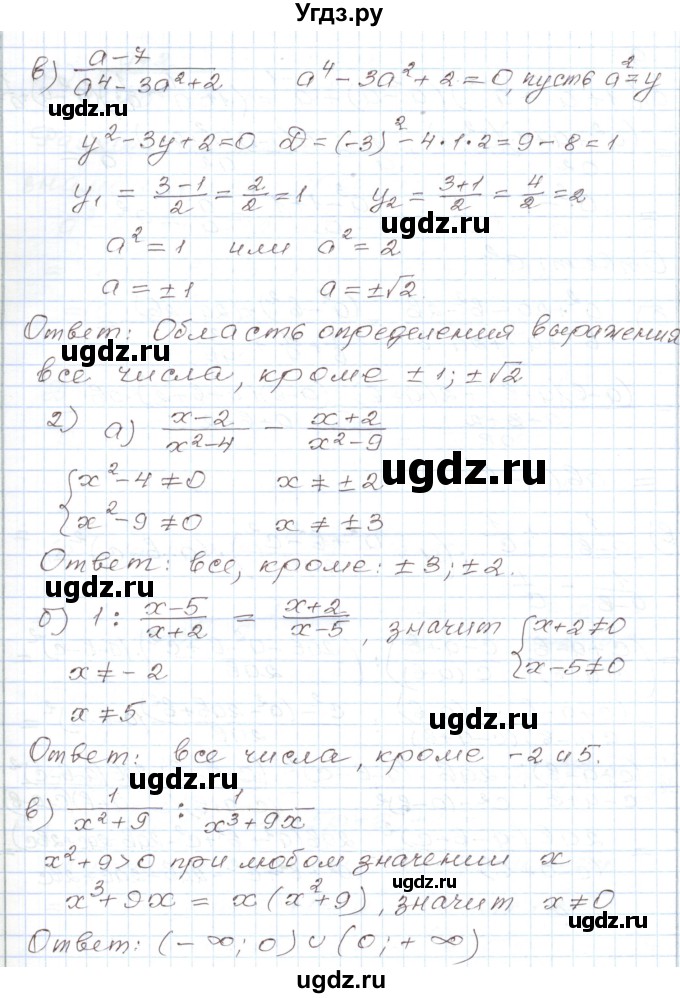 Угдз.ру
в) (a-7)/(a⁴-3a²+2) a⁴-3a²+2=0, пусть a²=y
ugdz.ru
y²-3y+2=0 D=(-3)²-4·1·2=9-8=1
y₁=(3-1)/2=2/2=1 y₂=(3+1)/2=4/2=2
ugdz.ru
ugdz.ru
a²=1 или a²=2
a=±1 a=±√2.
Ответ: Область определения выражения
ugdz.ru
ugdz.ru
все числа, кроме ±1; ±√2
2) а) (x-2)/(x²-4) - (x+2)/(x²-9)
ugdz.ru
{x²-4≠0 x≠±2
{x²-9≠0 x≠±3
Ответ: все, кроме: ±3; ±2.
ugdz.ru
б) 1 : (x-5)/(x+2) = (x+2)/(x-5), значит {x+2≠0
{x-5≠0
x≠-2
x≠5
ugdz.ru
Ответ: все числа, кроме -2 и 5.
ugdz.ru
в) 1/(x²+9) : 1/(x³+9x)
x²+9>0 при любом значении x
ugdz.ru
x³+9x = x(x²+9), значит x≠0
Ответ: (-∞; 0)∪(0; +∞)
ugdz.ru
ugdz.ru